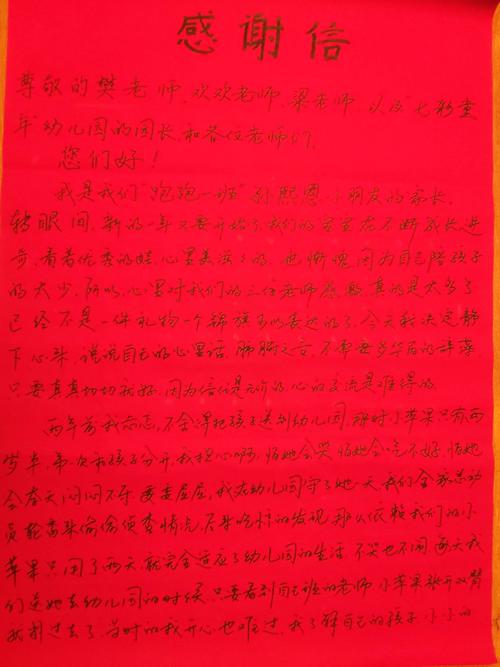 感谢信
尊敬的樊老师、欢欢老师、梁老师以及“七彩童
年”幼儿园的园长和各位老师们,
您们好!
我是我们“跑跑一班”孙熙恩小朋友的家长,
转眼间,新的一年又要开始了,我们的宝宝在不断成长进
步,看着优秀的娃,心里美滋滋的,也惭愧,因为自己陪孩子
的太少,所以,心里对我们的三位老师感激,真的是太多了
已经不是一件礼物一个锦旗可以表达的了,今天我决定静
下心来,说说自己的心里话,肺腑之言,不需要多华丽的辞藻
只要真真切切就好,因为信任是无价的,心的交流是难得的。
两年前我忐忑,不舍得把孩子送到幼儿园,那时小苹果只有两
岁半,第一次和孩子分开,我担心啊,怕她会哭,怕她会吃不好,怕她
会整天闷闷不乐,委委屈屈,我在幼儿园守了她一天,我们全家总动
员轮番来偷偷侦查情况,后来吃惊的发现,那么依赖我们的小
苹果只用了两天,就完全适应了幼儿园的生活,不哭也不闹,每天我
们送她去幼儿园的时候,只要看到自己班的老师,小苹果张开双臂
就扑过去了,当时的我开心也难过,我了解自己的孩子,小小的